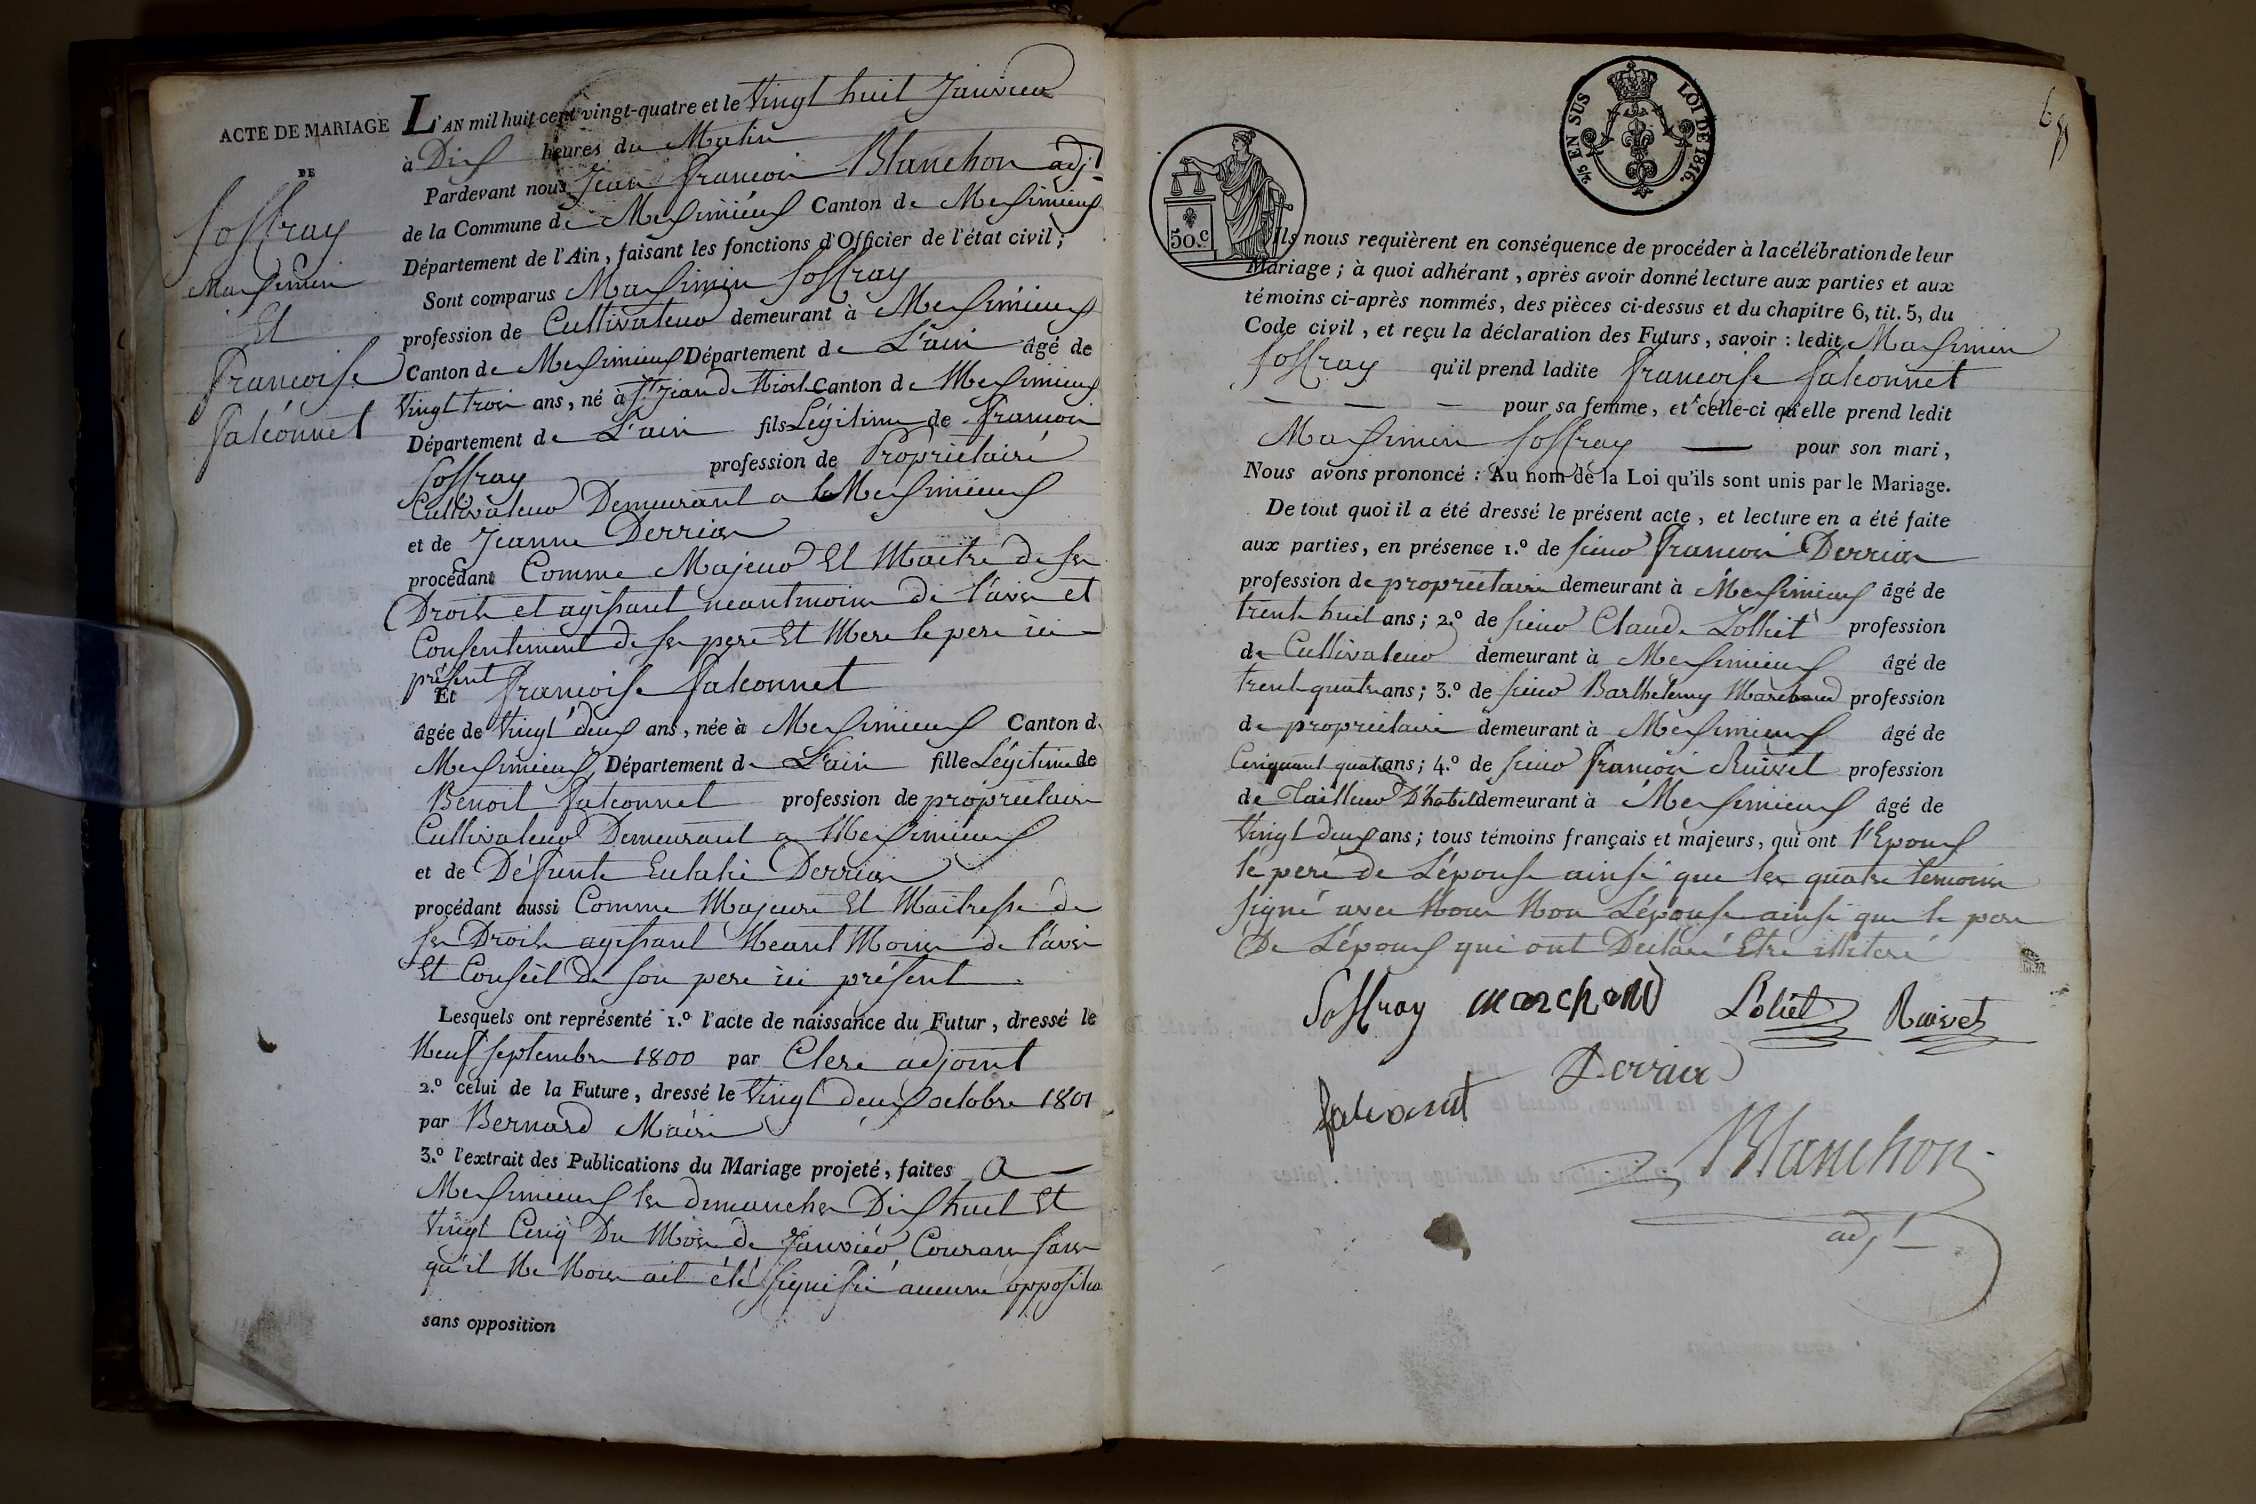 ACTE DE MARIAGE
DE
Soffray
Maximin
Et
francoise
falconnet
L'AN mil huit cent vingt-quatre et le Vingt huit Janvier
à Dix heures du Matin
Pardevant nous Jean francois Blanchon adj.t
de la Commune de Meximieux Canton de Meximieux
Département de l'Ain, faisant les fonctions d'Officier de l'état civil;
Sont comparus Maximin Soffray
profession de Cultivateur demeurant à Meximieux
Canton de Meximieux Département de L'ain âgé de
Vingt trois ans, né à St Jean de Niost Canton de Meximieux
Département de L'ain fils Légitime de francois
Soffray profession de Propriétaire
Cultivateur Demeurant a Meximieux
et de Jeanne Derrier
procédant Comme Majeur Et Maitre de ses
Droits et agissant neantmoins de l'avis et
Consentement de ses pere Et Mere le pere ici
présent
Et francoise falconnet
âgée de Vingt deux ans, née à Meximieux Canton de
Meximieux Département de L'ain fille Légitime de
Benoit falconnet profession de propriétaire
Cultivateur Demeurant a Meximieux
et de Défunte Eulalie Derrier
procédant aussi Comme Majeure Et Maitresse de
ses Droits agissant Neant Moins de l'avis
Et Conseil de son pere ici présent
Lesquels ont représenté 1.º l'acte de naissance du Futur, dressé le
Neuf septembre 1800 par Clerc adjoint
2.º celui de la Future, dressé le Vingt deux octobre 1801
par Bernard Maire
3.º l'extrait des Publications du Mariage projeté, faites a
Meximieux les dimanches Dix huit Et
Vingt Cinq Du Mois de Janvier Courans sans
qu'il Ne Nous ait été signifié aucune opposition
sans opposition
2/5 EN SUS
LOI DE 1816.
50.c
Ils nous requièrent en conséquence de procéder à la célébration de leur
Mariage; à quoi adhérant, après avoir donné lecture aux parties et aux
témoins ci-après nommés, des pièces ci-dessus et du chapitre 6, tit. 5, du
Code civil, et reçu la déclaration des Futurs, savoir: ledit Maximin
Soffray qu'il prend ladite francoise falconnet
pour sa femme, et celle-ci qu'elle prend ledit
Maximin Soffray pour son mari,
Nous avons prononcé: Au nom de la Loi qu'ils sont unis par le Mariage.
De tout quoi il a été dressé le présent acte, et lecture en a été faite
aux parties, en présence 1.º de sieur francois Derrier
profession de propriétaire demeurant à Meximieux âgé de
trente huit ans; 2.º de sieur Claude Lolliet profession
de Cultivateur demeurant à Meximieux âgé de
trente quatre ans; 3.º de sieur Barthelemy Marchand profession
de propriétaire demeurant à Meximieux âgé de
Cinquante quatre ans; 4.º de sieur francois Ruivet profession
de Tailleur D'habit demeurant à Meximieux âgé de
Vingt deux ans; tous témoins français et majeurs, qui ont l'Epoux
le pere de L'épouse ainsi que les quatre temoins
signé avec Nous Non L'épouse ainsi que le pere
De L'époux qui ont Déclaré Etre illiteré
Soffray marchand Loliet Ruivet
Derrier
falconnet
Blanchon
adj.t